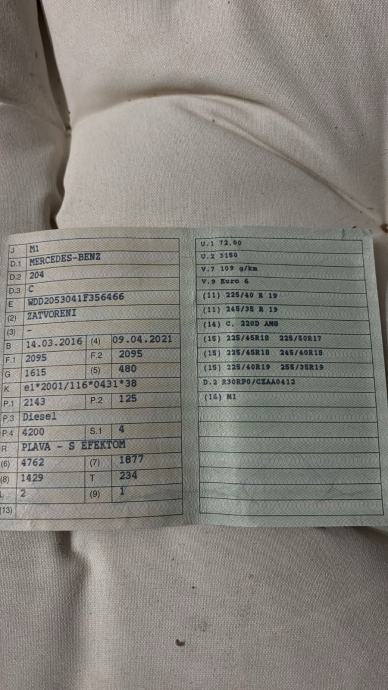 J M1
D.1 MERCEDES-BENZ
D.2 204
D.3 C
E WDD2053041F356466
(2) ZATVORENI
(3) -
B 14.03.2016 (4) 09.04.2021
F.1 2095 F.2 2095
G 1615 (5) 480
K e1*2001/116*0431*38
P.1 2143 P.2 125
P.3 Diesel
P.4 4200 S.1 4
R PLAVA - S EFEKTOM
(6) 4762 (7) 1877
(8) 1429 T 234
L 2 (9) 1
(13)
U.1 72,00
U.2 3150
V.7 109 g/km
V.9 Euro 6
(11) 225/40 R 19
(11) 245/35 R 19
(14) C, 220D AMG
(15) 225/45R18 225/50R17
(15) 225/45R18 245/40R18
(15) 225/40R19 255/35R19
D.2 R30RP0/CZAA0412
(16) M1